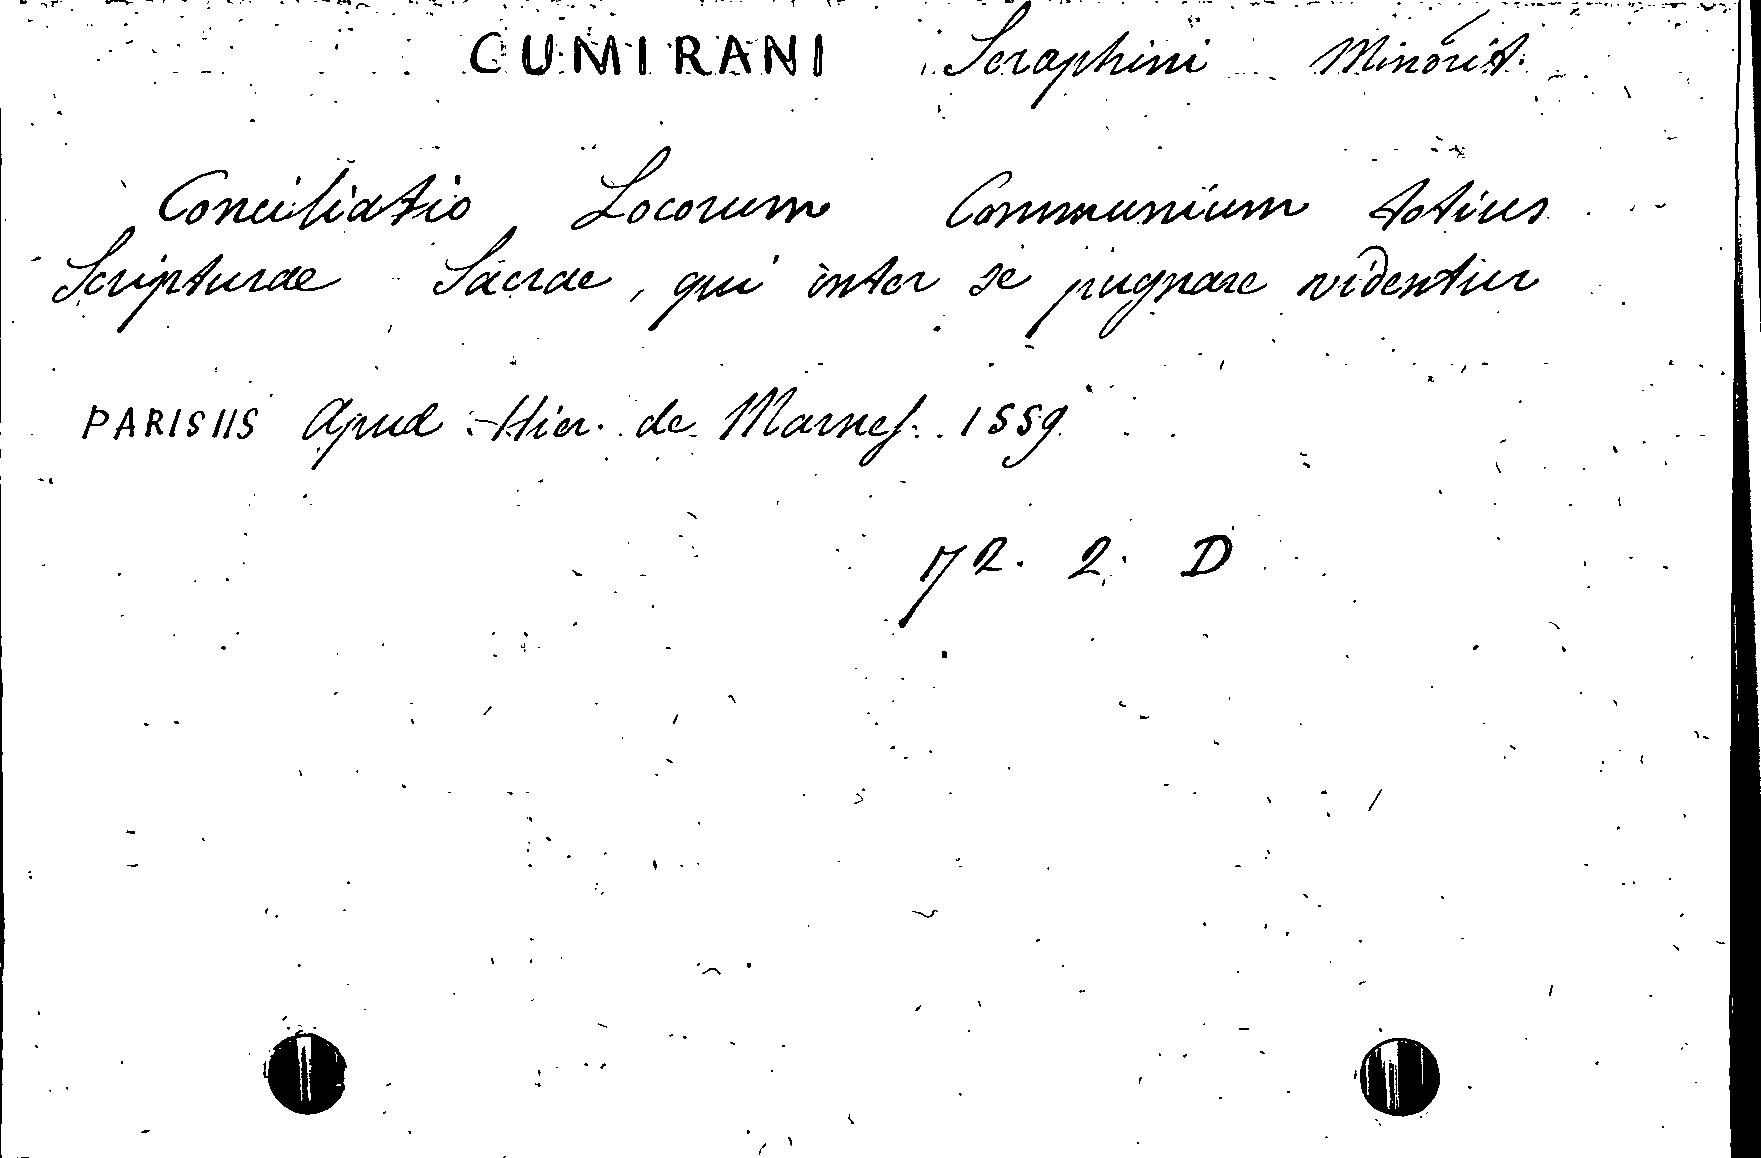 CUMIRANI Seraphini Minorit.
Conciliatio Locorum Communium totius
Scripturae Sacrae, qui inter se pugnare videntur
PARISIIS Apud Hier. de Marnef. 1559
72. 2. D